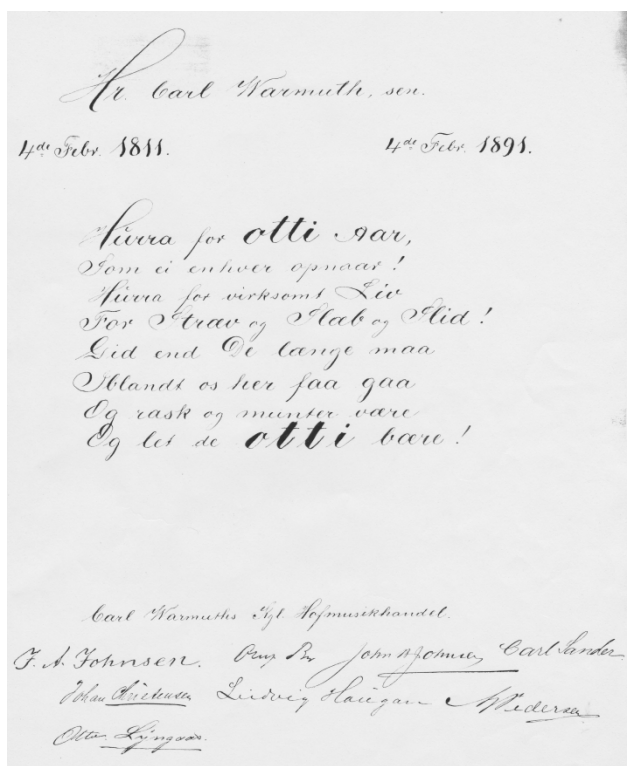 Hr. Carl Warmuth, sen.
4de Febr. 1811. 4de Febr. 1891.
Hurra for otti Aar,
Som ei enhver opnaar!
Hurra for virksomt Liv
For Stræv og Slab og Slid!
Gid end De længe maa
Iblandt os her faa gaa
Og rask og munter være
Og let de otti bære!
Carl Warmuths Kgl. Hofmusikhandel.
F. A. Johnsen. John A Johnsen Carl Sander
Johan Christensen Ludvig Haugan Pedersen
Otto Lÿngaas.